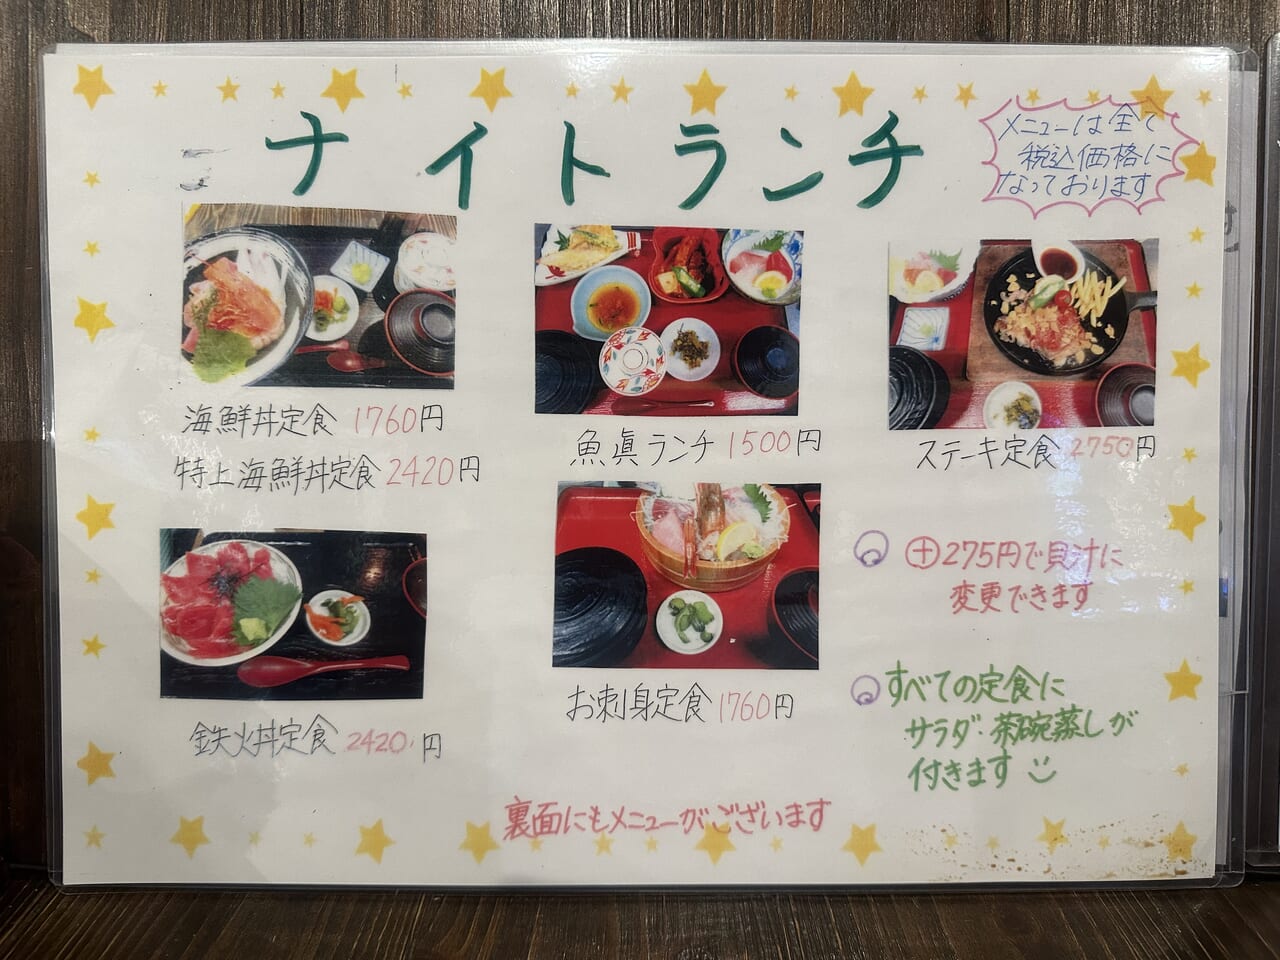 ナイトランチ
メニューは全て
税込価格に
なっております
海鮮丼定食 1760円
特上海鮮丼定食 2420円
魚眞ランチ 1500円
ステーキ定食 2750円
鉄火丼定食 2420円
お刺身定食 1760円
⊕275円で貝汁に
変更できます
すべての定食に
サラダ・茶碗蒸しが
付きます
裏面にもメニューがございます